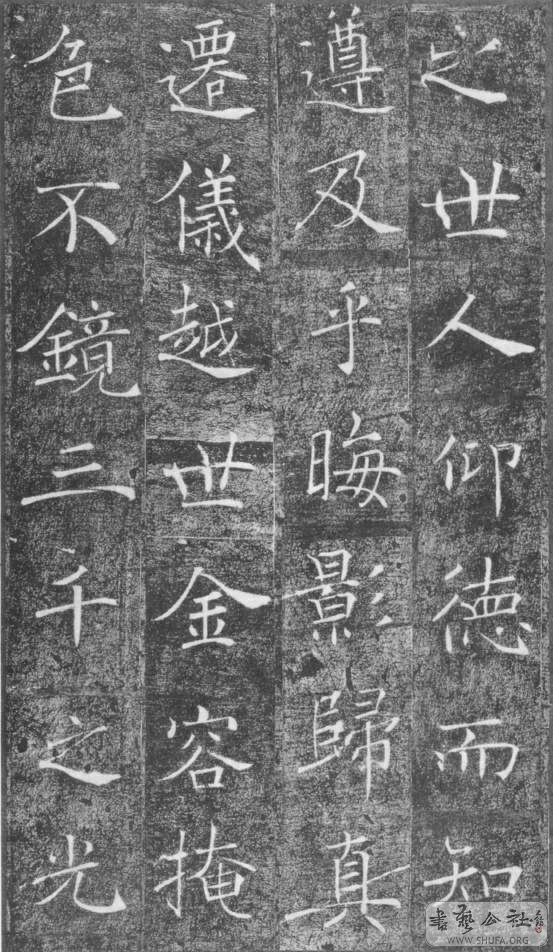 之世人仰德而知
遵及乎晦影歸真
遷儀越世金容掩
色不鏡三千之光
書藝公社
WWW.SHUFA.ORG